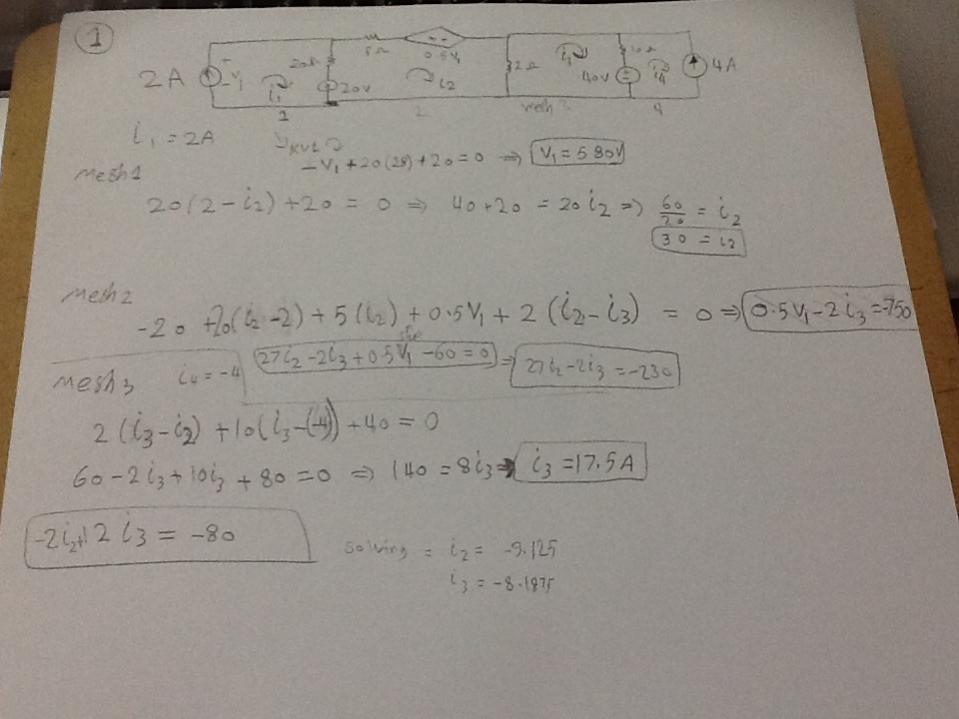 1
5Ω 0.5V1
2A V1 i1 20V i2 2Ω i3 10Ω 40V i4 4A
1 2 mesh 3 4
i1 = 2A KVL
-V1 + 20(28) + 20 = 0 ⇒ V1 = 580V
Mesh 1
20(2 - i2) + 20 = 0 ⇒ 40 + 20 = 20 i2 ⇒ 60/20 = i2
30 = i2
Mesh 2
-20 + 20(i2 - 2) + 5(i2) + 0.5V1 + 2(i2 - i3) = 0 ⇒ 0.5V1 - 2i3 = -750
27i2 - 2i3 + 0.5V1 - 60 = 0 ⇒ 27i2 - 2i3 = -230
Mesh 3 i4 = -4
2(i3 - i2) + 10(i3 - (-4)) + 40 = 0
60 - 2i3 + 10i3 + 80 = 0 ⇒ 140 = 8i3 ⇒ i3 = 17.5A
-2i2 + 12i3 = -80
Solving = i2 = -9.125
i3 = -8.1875